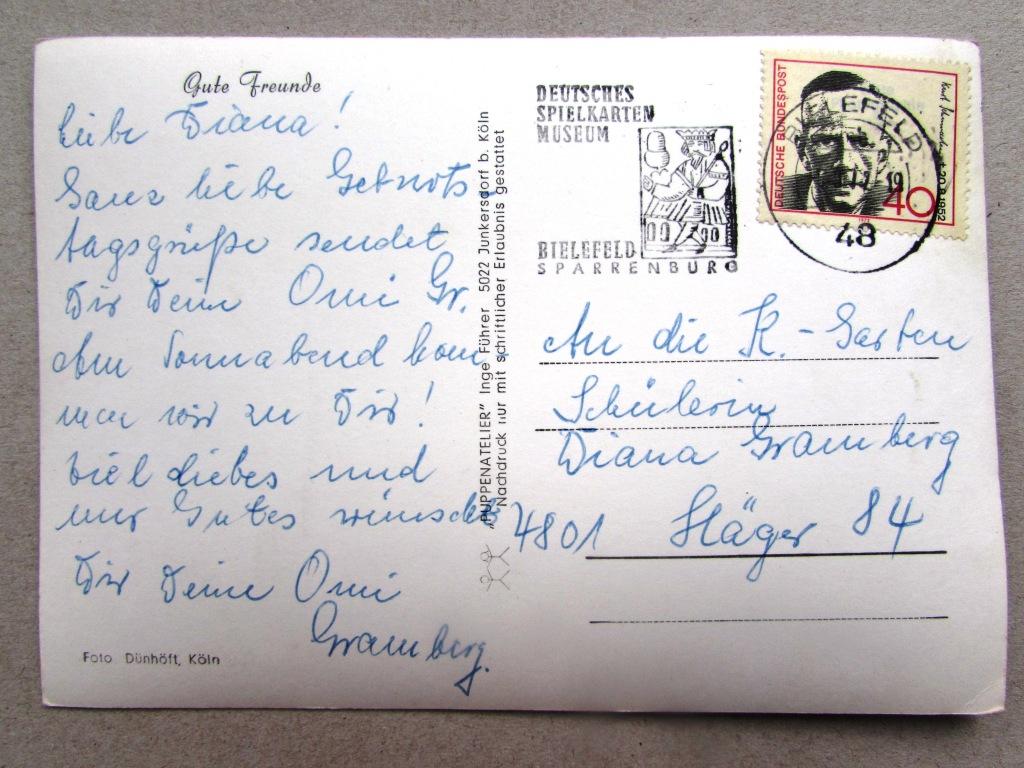 Gute Freunde
Liebe Diana!
Ganz liebe Geburts
tagsgrüße sendet
Dir Deine Omi Gr.
Am Sonnabend kom
men wir zu Dir!
Viel Liebes und
nur Gutes wünscht
Dir Deine Omi
Gramberg.
Foto Dünhöft, Köln
„PUPPENATELIER" Inge Führer 5022 Junkersdorf b. Köln
Nachdruck nur mit schriftlicher Erlaubnis gestattet
DEUTSCHES
SPIELKARTEN
MUSEUM
BIELEFELD
SPARRENBURG
DEUTSCHE BUNDESPOST
20.8.1952
40
BIELEFELD
48
An die K.-Garten
Schülerin
Diana Gramberg
4801 Häger 84